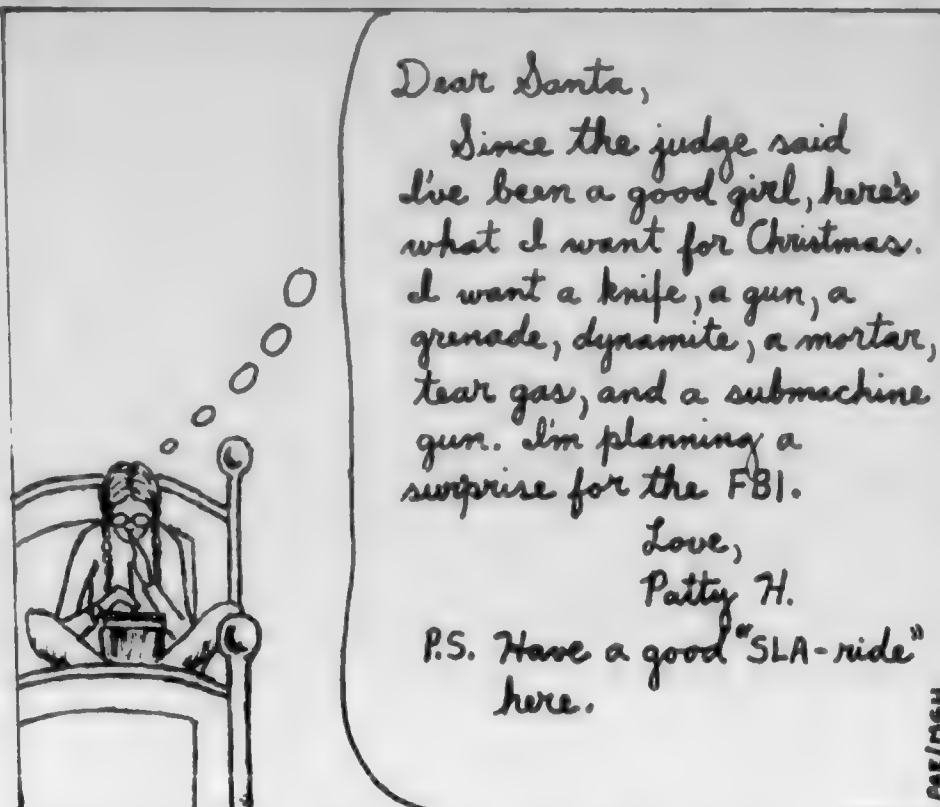 Dear Santa,
Since the judge said
I've been a good girl, here's
what I want for Christmas.
I want a knife, a gun, a
grenade, dynamite, a mortar,
tear gas, and a submachine
gun. I'm planning a
surprise for the FBI.
Love,
Patty H.
P.S. Have a good "SLA-ride"
here.